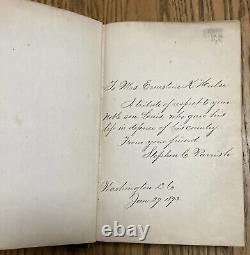 To Mrs Ernestine K
A tribute of respect to your
noble son Louis, who gave his
life in defence of his country
From your friend
Stephen C Parrish
Washington D.C.
Jany 27 1893